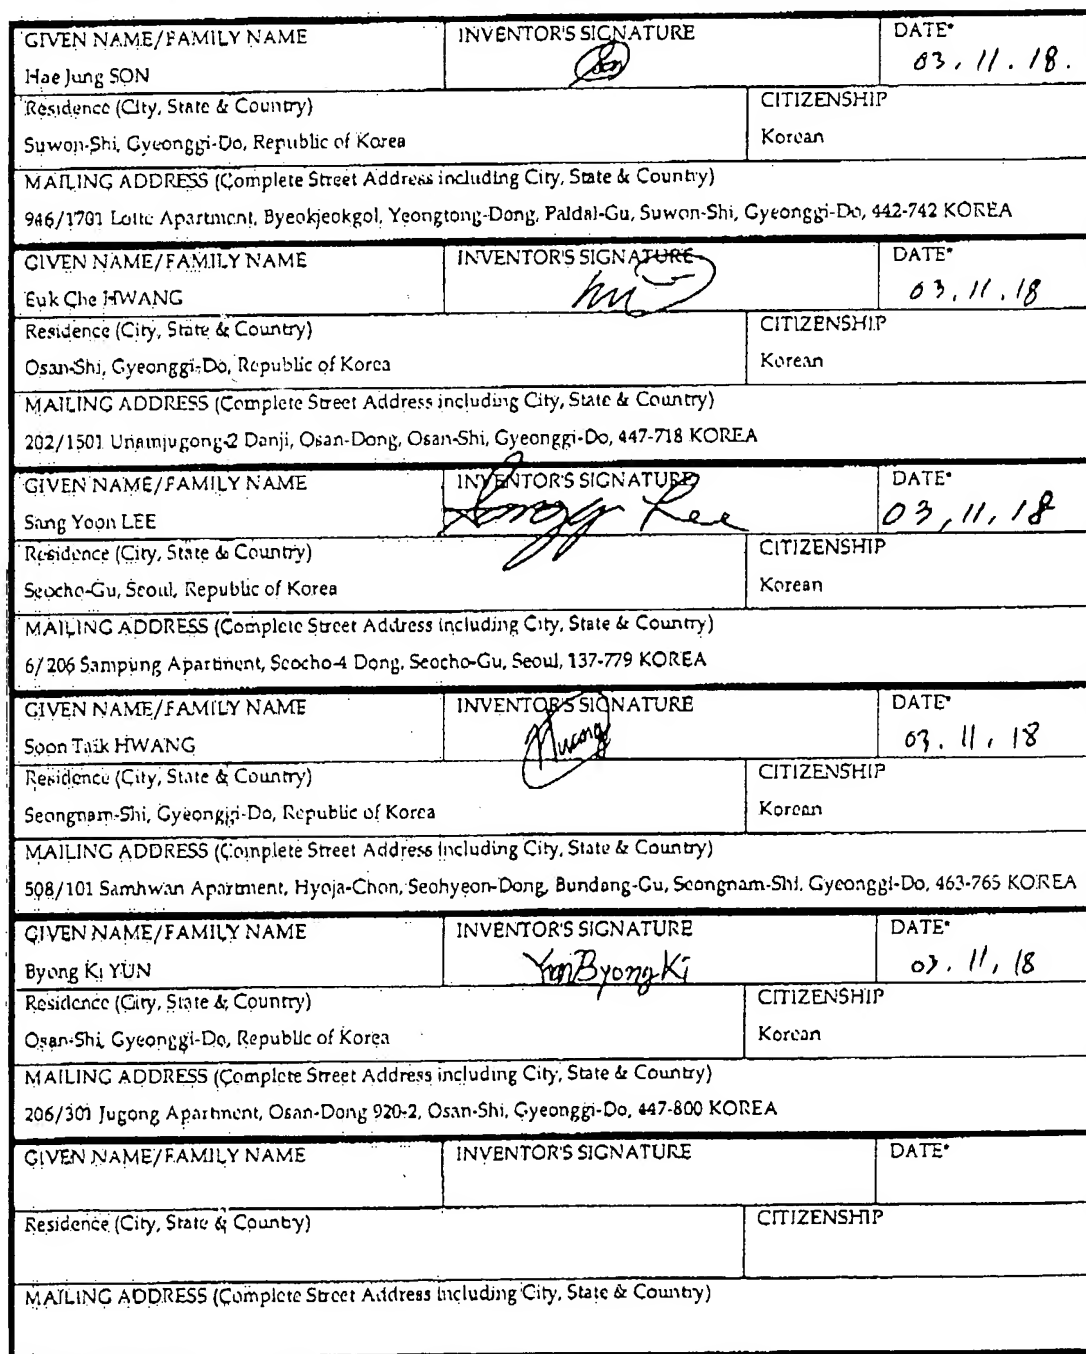 GIVEN NAME/FAMILY NAME INVENTOR'S SIGNATURE DATE*
Hae Jung SON Son 03. 11. 18.
Residence (City, State & Country) CITIZENSHIP
Suwon-Shi, Gyeonggi-Do, Republic of Korea Korean
MAILING ADDRESS (Complete Street Address including City, State & Country)
946/1701 Lotte Apartment, Byeokjeokgol, Yeongtong-Dong, Paldal-Gu, Suwon-Shi, Gyeonggi-Do, 442-742 KOREA
GIVEN NAME/FAMILY NAME INVENTOR'S SIGNATURE DATE*
Euk Che HWANG 03. 11. 18
Residence (City, State & Country) CITIZENSHIP
Osan-Shi, Gyeonggi-Do, Republic of Korea Korean
MAILING ADDRESS (Complete Street Address including City, State & Country)
202/1501 Unamjugong-2 Danji, Osan-Dong, Osan-Shi, Gyeonggi-Do, 447-718 KOREA
GIVEN NAME/FAMILY NAME INVENTOR'S SIGNATURE DATE*
Sang Yoon LEE Lee 03, 11, 18
Residence (City, State & Country) CITIZENSHIP
Seocho-Gu, Seoul, Republic of Korea Korean
MAILING ADDRESS (Complete Street Address including City, State & Country)
6/206 Sampung Apartment, Seocho-4 Dong, Seocho-Gu, Seoul, 137-779 KOREA
GIVEN NAME/FAMILY NAME INVENTOR'S SIGNATURE DATE*
Soon Taik HWANG Hwang 03. 11, 18
Residence (City, State & Country) CITIZENSHIP
Seongnam-Shi, Gyeonggi-Do, Republic of Korea Korean
MAILING ADDRESS (Complete Street Address including City, State & Country)
508/101 Samhwan Apartment, Hyoja-Chon, Seohyeon-Dong, Bundang-Gu, Seongnam-Shi, Gyeonggi-Do, 463-765 KOREA
GIVEN NAME/FAMILY NAME INVENTOR'S SIGNATURE DATE*
Byong Ki YUN Yun Byong Ki 03. 11, 18
Residence (City, State & Country) CITIZENSHIP
Osan-Shi, Gyeonggi-Do, Republic of Korea Korean
MAILING ADDRESS (Complete Street Address including City, State & Country)
206/301 Jugong Apartment, Osan-Dong 920-2, Osan-Shi, Gyeonggi-Do, 447-800 KOREA
GIVEN NAME/FAMILY NAME INVENTOR'S SIGNATURE DATE*
Residence (City, State & Country) CITIZENSHIP
MAILING ADDRESS (Complete Street Address including City, State & Country)